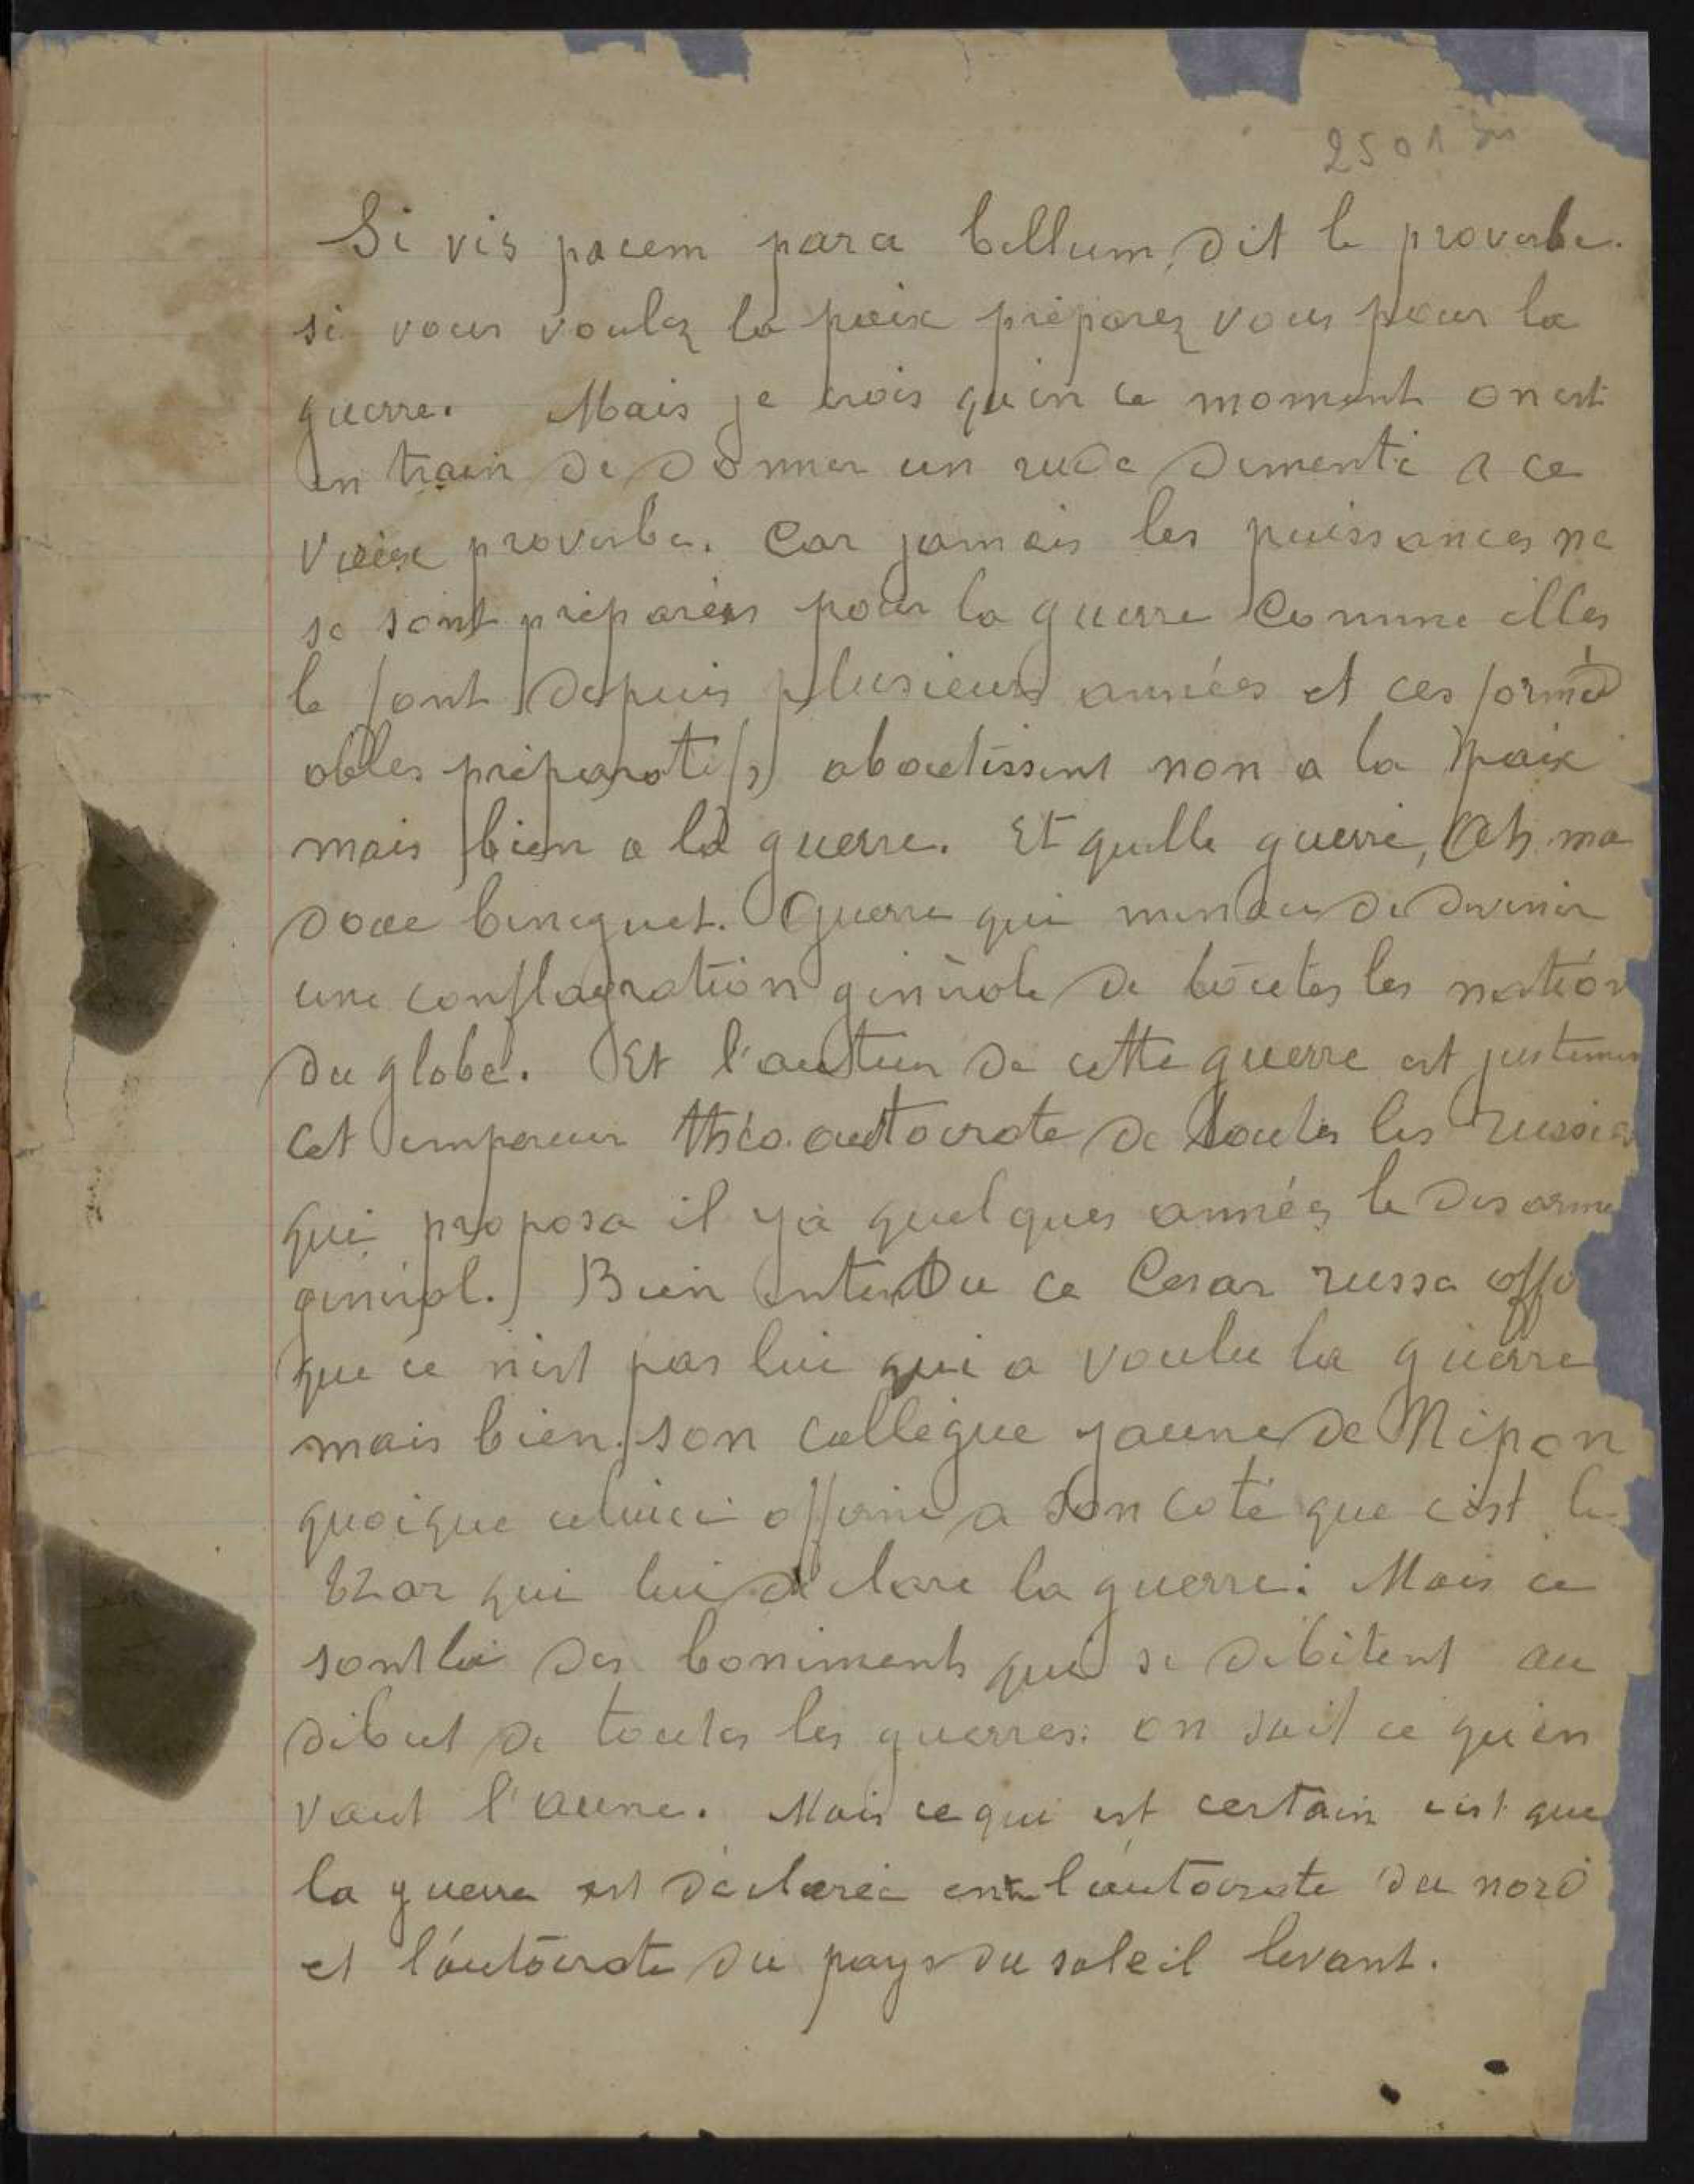 2501 bis
Si vis pacem para bellum, dit le proverbe.
si vous voulez la paix préparez vous pour la
guerre. Mais je crois qu'en ce moment on est
en train de donner un rude dementi a ce
vieux proverbe. Car jamais les puissances ne
se sont préparées pour la guerre comme elles
le font depuis plusieurs années et ces formid
ables préparatifs aboutissent non a la paix
mais bien a la guerre. Et quelle guerre, Oh ma
doue beneguet. Guerre qui menace de devenir
une conflagration générale de toutes les nation
du globe. Et l'auteur de cette guerre est justemen
cet empereur théo. autocrate de toutes les russies
qui proposa il y a quelques années le desarme
général. Bien entendu ce Cesar russe affi
que ce n'est pas lui qui a voulu la guerre
mais bien son collègue jaune de Nipon
quoique celuici affirme a son coté que c'est le
tzar qui lui declare la guerre. Mais ce
sont la des boniments qui se débitent au
début de toutes les guerres: on sait ce qu'en
vaut l'aune. Mais ce qui est certain c'est que
la guerre est déclarée entre l'autocrate du nord
et l'autocrate du pays du soleil levant.